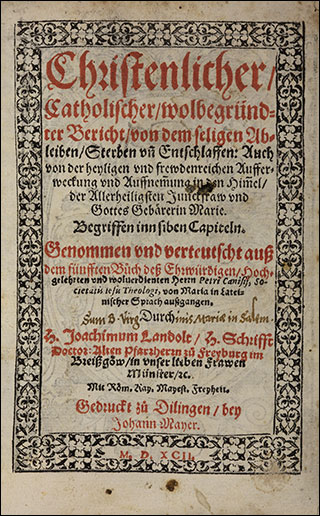 Christenlicher/
Catholischer/wolbegründ-
ter Bericht/von dem seligen Ab-
leiben/Sterben vñ Entschlaffen: Auch
von der heyligen vnd frewdenreichen Auffer-
weckung vnd Auffnem̃ung in den Him̃el/
der Allerheiligsten Junckfraw vnd
Gottes Gebärerin Marie.
Begriffen inn siben Capiteln.
Genommen vnd verteutscht auß
dem fünfften Büch deß Ehwürdigen/Hoch-
gelehrten vnd wolverdienten Herrn Petri Canisij, So-
cietatis Iesu Theologi, von Maria in Latei-
nischer Sprach außgangen,
Sum B. Virg Durch Mariæ in Salem
H. Joachimum Landolt/H. Schrifft
Doctor: Alten Pfarrherrn zů Freyburg im
Breißgöw/in vnser lieben Frawen
Münster/rc.
Mit Röm. Kay. Mayest. Freyheit.
Gedruckt zů Dilingen/bey
Johann Mayer.
M. D. XCII.